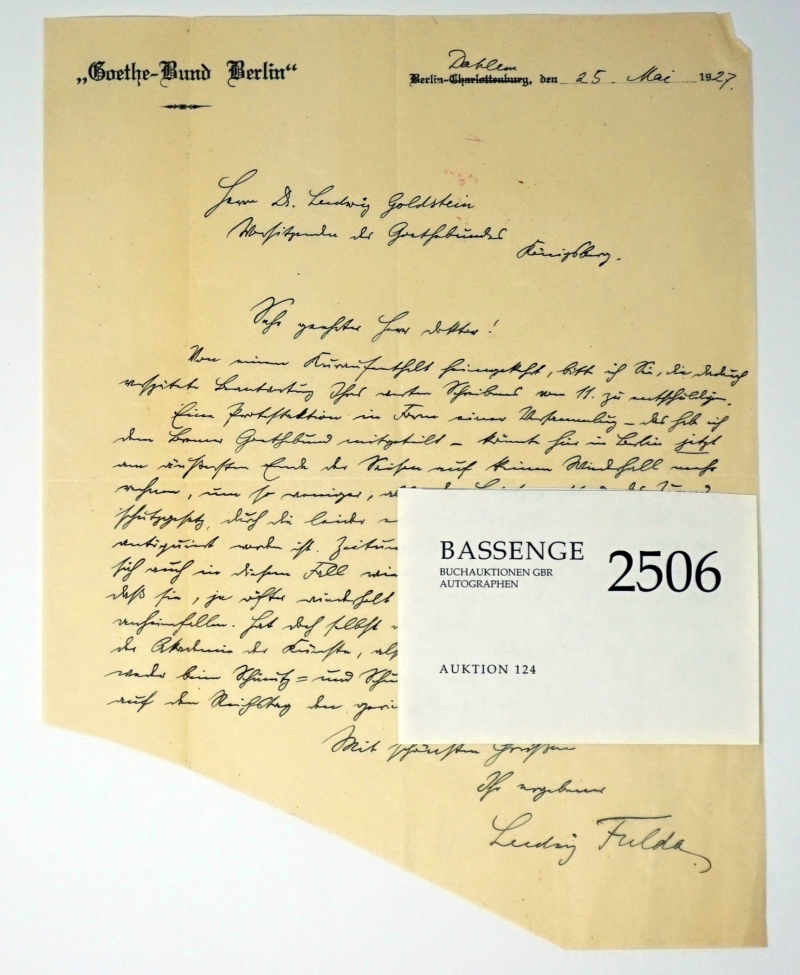 „Goethe-Bund Berlin“
Dahlem
Berlin-Charlottenburg, den 25. Mai 1927.
Herrn Dr. Ludwig Goldstein
Vorsitzenden des Goethebundes
Königsberg.
Sehr geehrter Herr Doktor!
Von einem Kuraufenthalt heimgekehrt, bitte ich Sie, die dadurch
verspätete Beantwortung Ihres werten Schreibens vom 11. zu entschuldigen.
Eine Protestaktion in Form einer Versammlung – das hab ich
dem Bremer Goethebund mitgeteilt – könnte hier in Berlin jetzt
am äußersten Ende der Saison auf keinen Widerhall mehr
rechnen, um so weniger,
schutzgesetz, durch die leider
antiquiert worden ist.
sich auch in diesem Fall
daß sie, je öfter wiederholt
anheimfallen. Hat doch selbst
der Akademie der Künste,
weder beim Schmutz- und
auf den Reichstag den
Mit schönsten Grüßen
Ihr ergebener
Ludwig Fulda
BASSENGE
BUCHAUKTIONEN GBR
AUTOGRAPHEN
2506
AUKTION 124